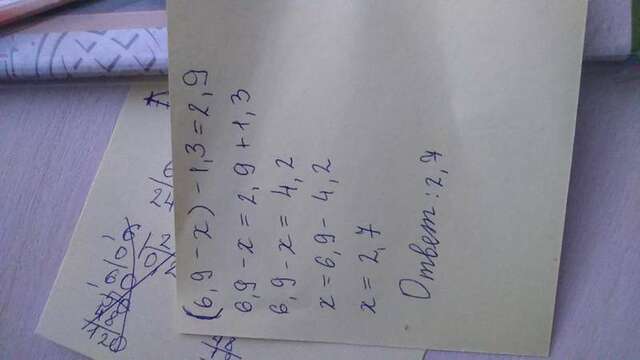 (6,9 - x) - 1,3 = 2,9
6,9 - x = 2,9 + 1,3
6,9 - x = 4,2
x = 6,9 - 4,2
x = 2,7
Ответ: 2,7